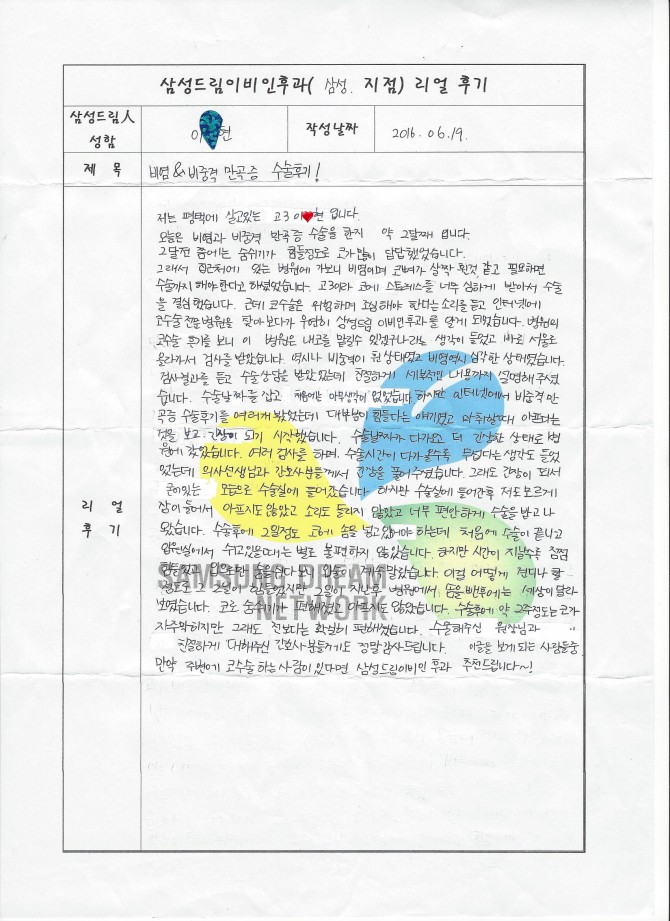 삼성드림이비인후과( 삼성. 지점) 리얼 후기
삼성드림人 성함 이 현 작성날짜 2016. 06.19.
제 목 비염&비중격 만곡증 수술후기!
리 얼
후 기
저는 평택에 살고있는 고3 이 현 입니다.
오늘은 비염과 비중격 만곡증 수술을 한지 약 한달째 입니다.
한달전 쯤에는 숨쉬기가 힘들정도로 코가 많이 답답했었습니다.
그래서 집근처에 있는 병원에 가보니 비염이며 코뼈가 살짝 휜것 같고 필요하면
수술까지 해야한다고 하셨었습니다. 고3이라 코에 스트레스를 너무 심하게 받아서 수술
을 결심했습니다. 근데 코수술은 위험하며 조심해야 한다는 소리를 듣고 인터넷에
코수술 전문병원을 찾아보다가 우연히 삼성드림 이비인후과를 알게 되었습니다. 병원의
코수술 후기를 보니 이 병원은 내코를 맡길수 있겠구나 라는 생각이 들었고 바로 서울로
올라가서 검사를 받았습니다. 역시나 비중격이 휜 상태였고 비염역시 심각한 상태였습니다.
검사결과를 듣고 수술상담을 받았었는데 친절하게 세부적인 내용까지 설명해 주셨
습니다. 수술날짜를 잡고 처음에는 아무생각이 없었습니다 하지만 인터넷에서 비중격 만
곡증 수술후기를 여러개 봤었는데 대부분이 힘들다는 얘기였고 마취할때 아프다는
것을 보고 긴장이 되기 시작했습니다. 수술날짜가 다가오고 더 긴장한 상태로 병
원에 갔었습니다. 여러 검사를 하며, 수술시간이 다가올수록 무섭다는 생각도 들었
었는데 의사선생님과 간호사분들께서 긴장을 풀어주셨습니다. 그래도 긴장이 되서
굳어있는 모습으로 수술실에 들어갔습니다. 하지만 수술실에 들어간후 저도모르게
잠이 들어서 아프지도 않았고 소리도 들리지 않았고 너무 편안하게 수술을 받고 나
왔습니다. 수술후에 2일정도 코에 솜을 넣고 있어야 하는데 처음에 수술이 끝나고
입원실에서 쉬고있을때는 별로 불편하지 않았습니다. 하지만 시간이 지날수록 점점
힘들었고 입으로만 숨을쉬다 보니 입술이 계속 말랐습니다. 이걸 어떻게 견디나 할
정도로 그 2일이 힘들었지만 2일이 지난후 병원에서 솜을 뺀후에는 세상이 달라
보였습니다. 코로 숨쉬기가 편해졌고 아프지도 않았습니다. 수술후에 약 2주정도는 코가
자주막히지만 그래도 전보다는 확실히 편해졌습니다. 수술해주신 원장님과
친절하게 대해주신 간호사분들께도 정말감사드립니다. 이글을 보게 되는 사람들중
만약 주변에 코수술 하는사람이 있다면 삼성드림이비인 후과 추천드립니다~!
SAMSUNG DREAM
NETWORK